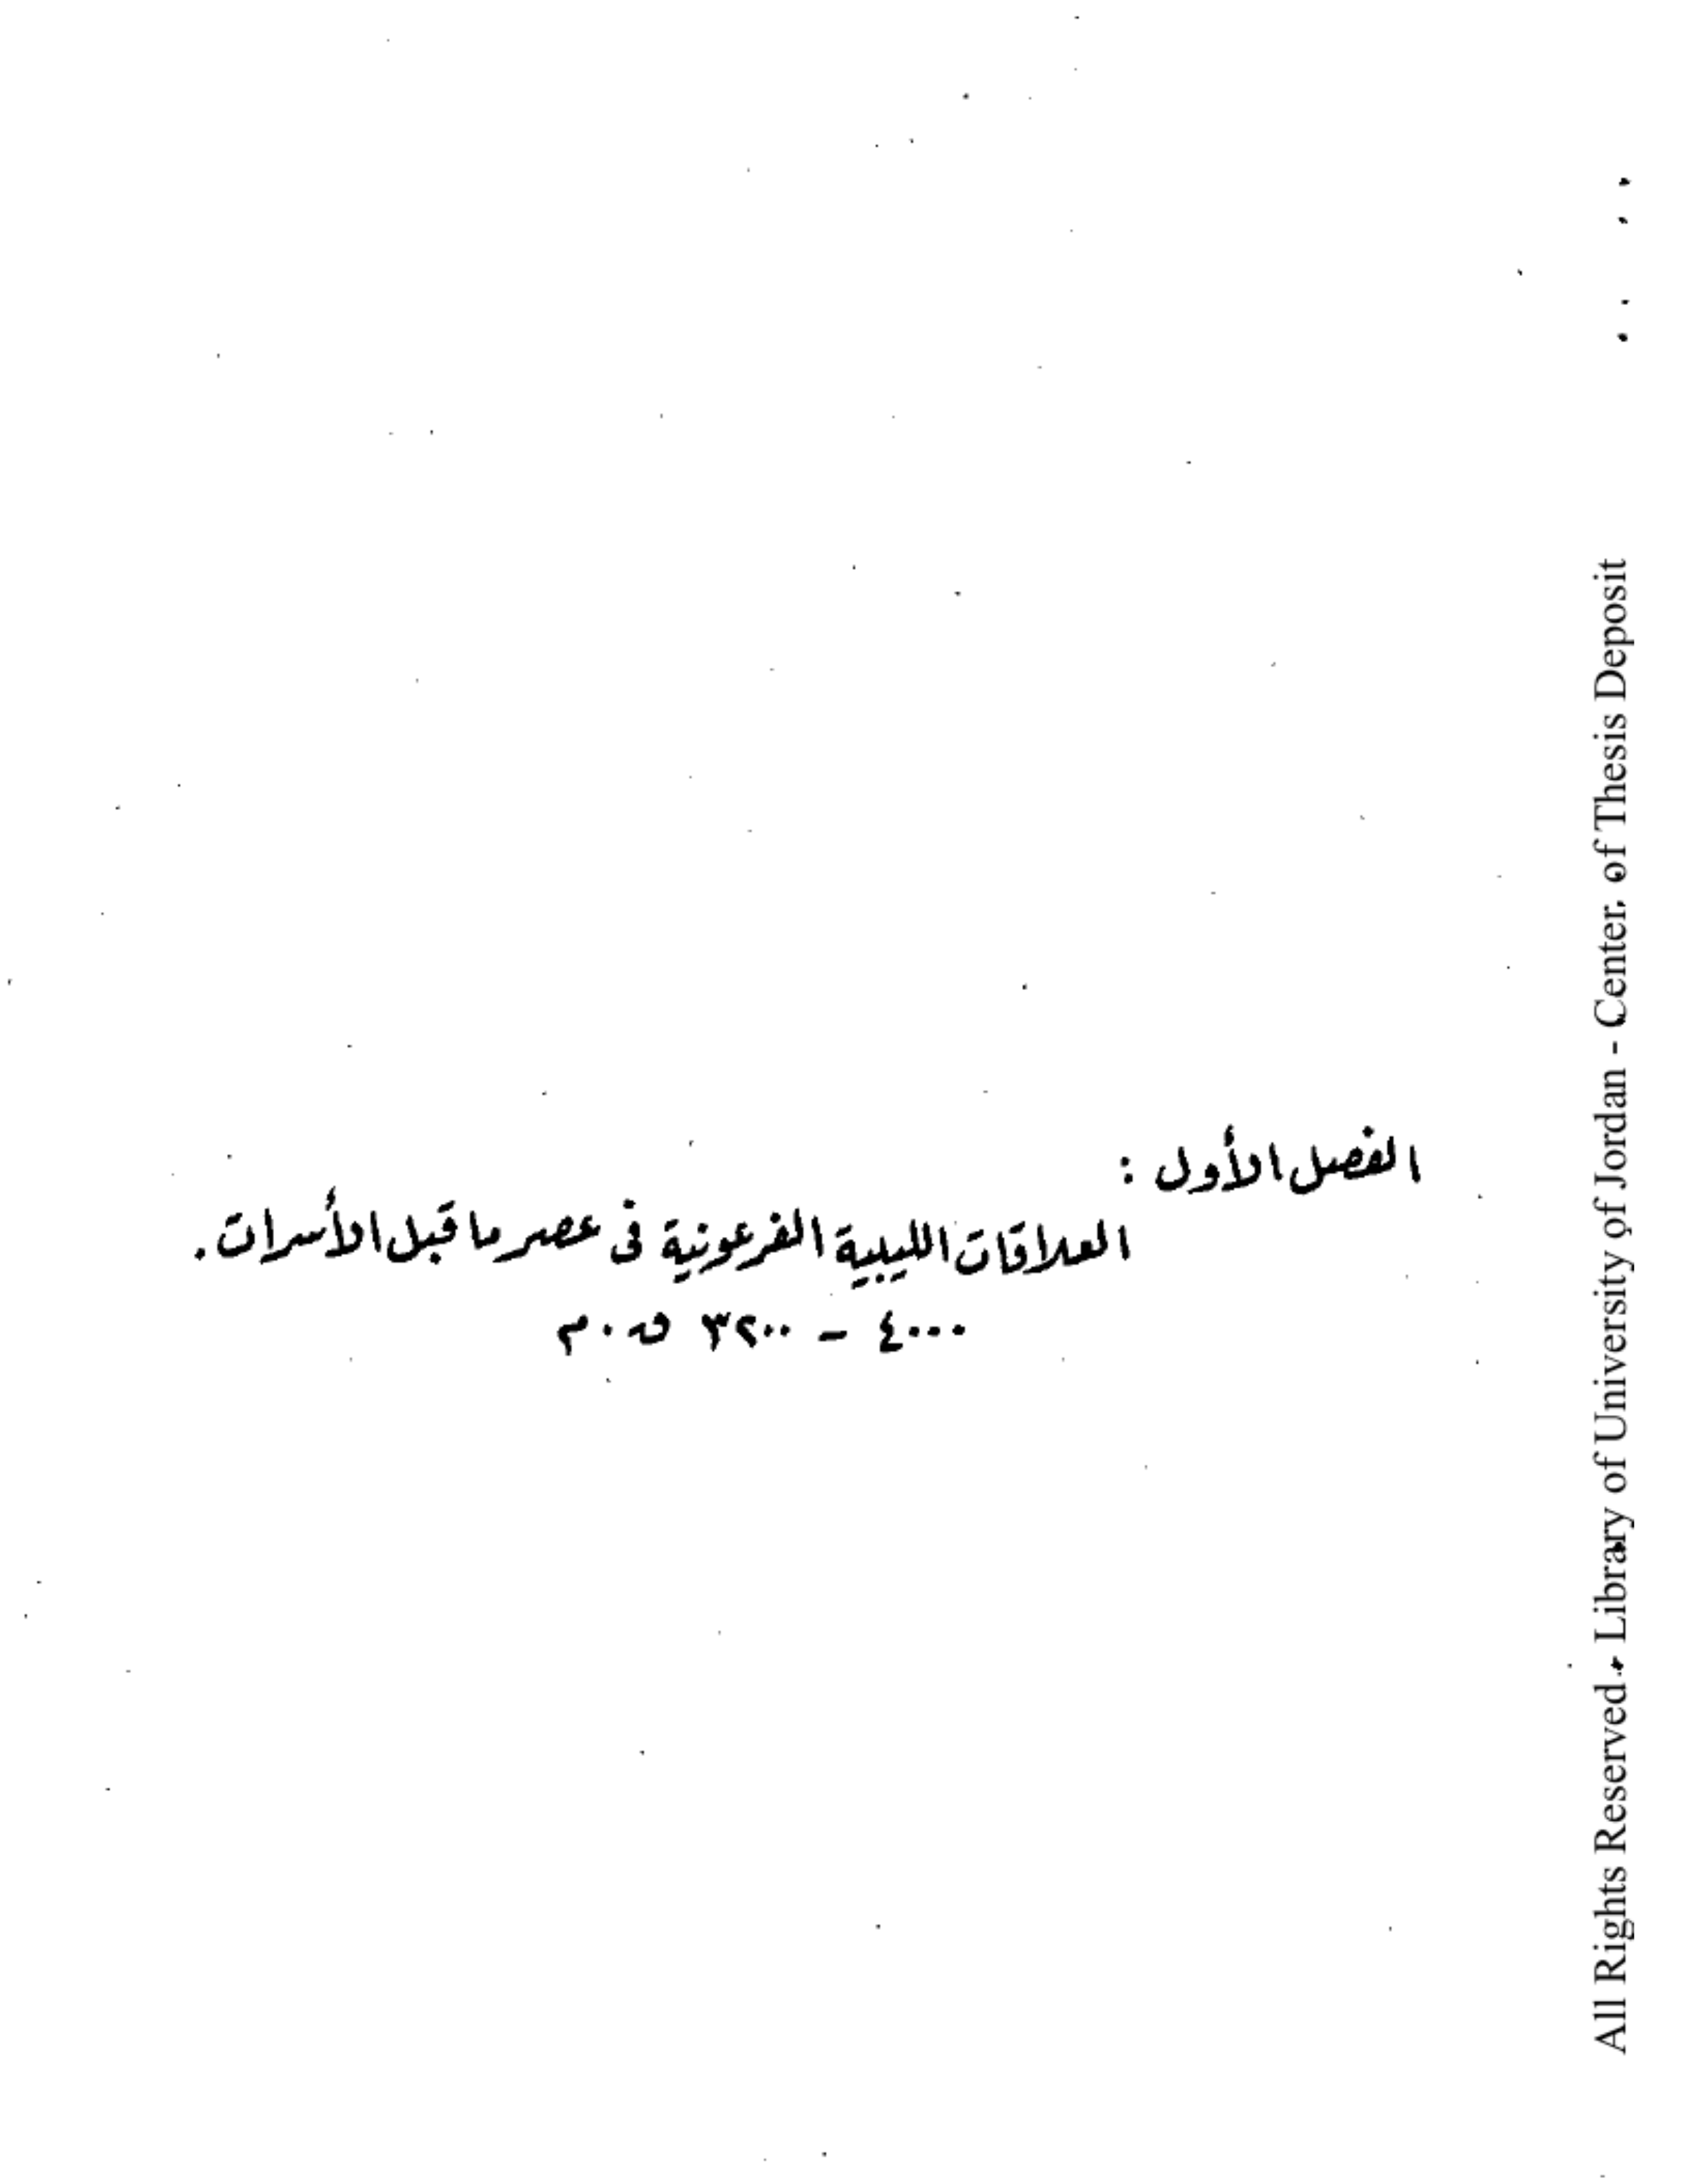 الفصل الأول :
العلاقات الليبية الفرعونية فى عصر ما قبل الأسرات .
٤٠٠٠ - ٣٢٠٠ ق . م
All Rights Reserved - Library of University of Jordan - Center of Thesis Deposit